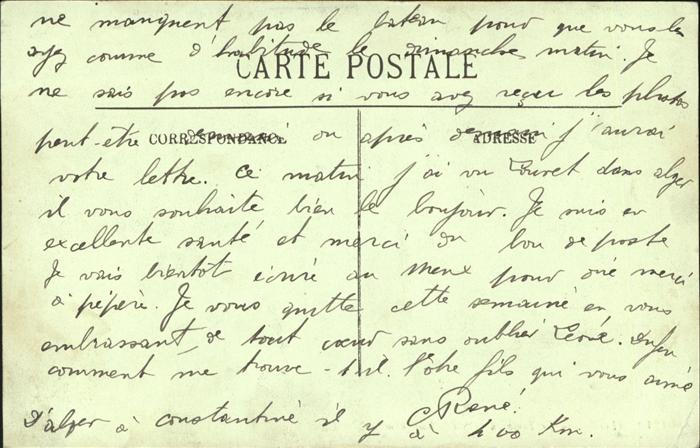 ne manquent pas le bateau pour que vous les
ayez comme d'habitude le dimanche matin. Je
CARTE POSTALE
ne sais pas encore si vous avez reçu les photos
CORRESPONDANCE
ADRESSE
peut-être demain ou après demain j'aurai
votre lettre. Ce matin j'ai vu Louvet dans alger
il vous souhaite bien le bonjour. Je suis en
excellente santé et merci du bon de poste
Je vais bientot écrire au vieux pour dire merci
à pépère. Je vous quitte cette semaine en vous
embrassant de tout coeur sans oublier
comment me trouve-t-il. Votre fils qui vous aime
René.
D'alger à constantine il y a 400 Km.